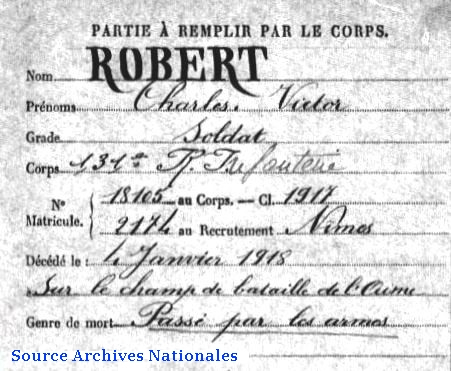 PARTIE À REMPLIR PAR LE CORPS.
Nom ROBERT
Prénoms Charles, Victor
Grade Soldat
Corps 131e R. Infanterie
No Matricule. { 18105 au Corps. — Cl. 1917
2174 au Recrutement Nîmes
Décédé le : 4 Janvier 1918
Sur le champ de bataille de
Genre de mort Passé par les armes
Source Archives Nationales